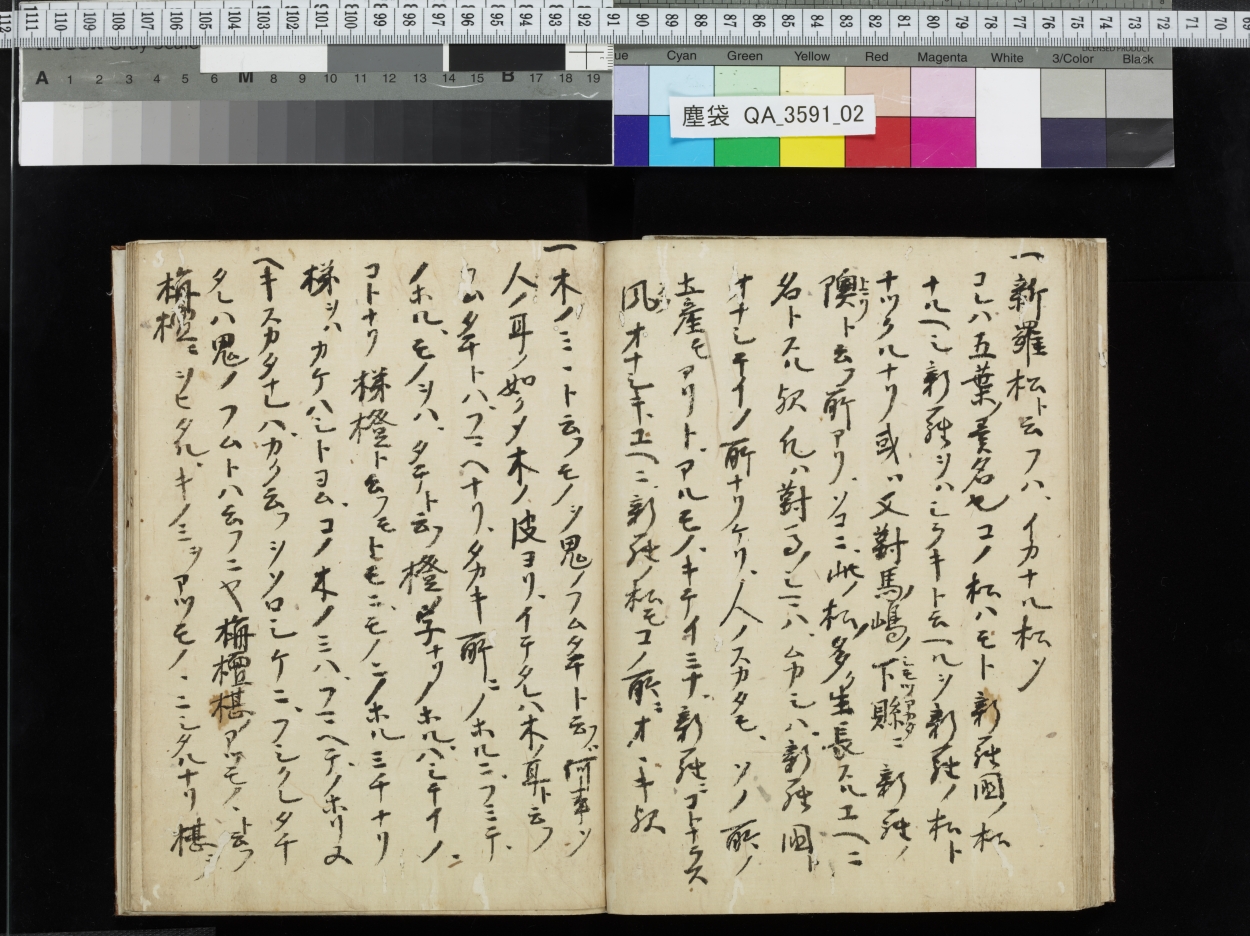 塵袋 QA_3591_02
一新羅松ト云フハ、イカナル松ソ
コレハ五葉ノ異名也コノ松ハモト新羅國ノ松
ナルヘシ新羅ヲハシラキト云ヘルヲ新羅ノ松ト
ナツクルナリ或ハ又對馬嶋ノ下縣ニ新羅ノ
隩ト云フ所アリ、ソコニ此ノ松多ク生長スルユヘニ
名トスル歟凡ハ對馬ノシマハ、ムカシハ新羅國ト
オナシテイノ所ナリケリ、人ノスカタモ、ソノ所ノ
土産モアリト、アルモノ、キテイミナ、新羅ニコトナラス
風オナシキユヘニ、新羅ノ松モコノ所ニオホキ歟
一木ノミヽト云フモノヲ鬼ノフムタキト云フ何事ソ
人ノ耳ノ如クメ木ノ皮ヨリ、イテタレハ木ノ耳ト云フ
フムタキトハ、フマヘナリ、タカキ所ニノホルニ、フミテ、
ノホル、モノヲハ、タナト云フ橙ノ字ナリノホルハシテイノ
コトナリ梯橙ト云フモトモニ、モノニノホルミチナリ
梯ヲハカケハシトヨム、コノ木ノミハ、フマヘテ、ノホリヌ
ヘキスカタナレハ、カク云フソソロシケニ、フシクレタチ
タレハ鬼ノフムトハ云フニヤ梅檀椹ノアツモノヽト云フ
梅檀ニヲヒタル、キノミヽヲアツモノヽニシタルナリ椹ヲ
Cyan
Green
Yellow
Red
Magenta
White
3/Color
Black